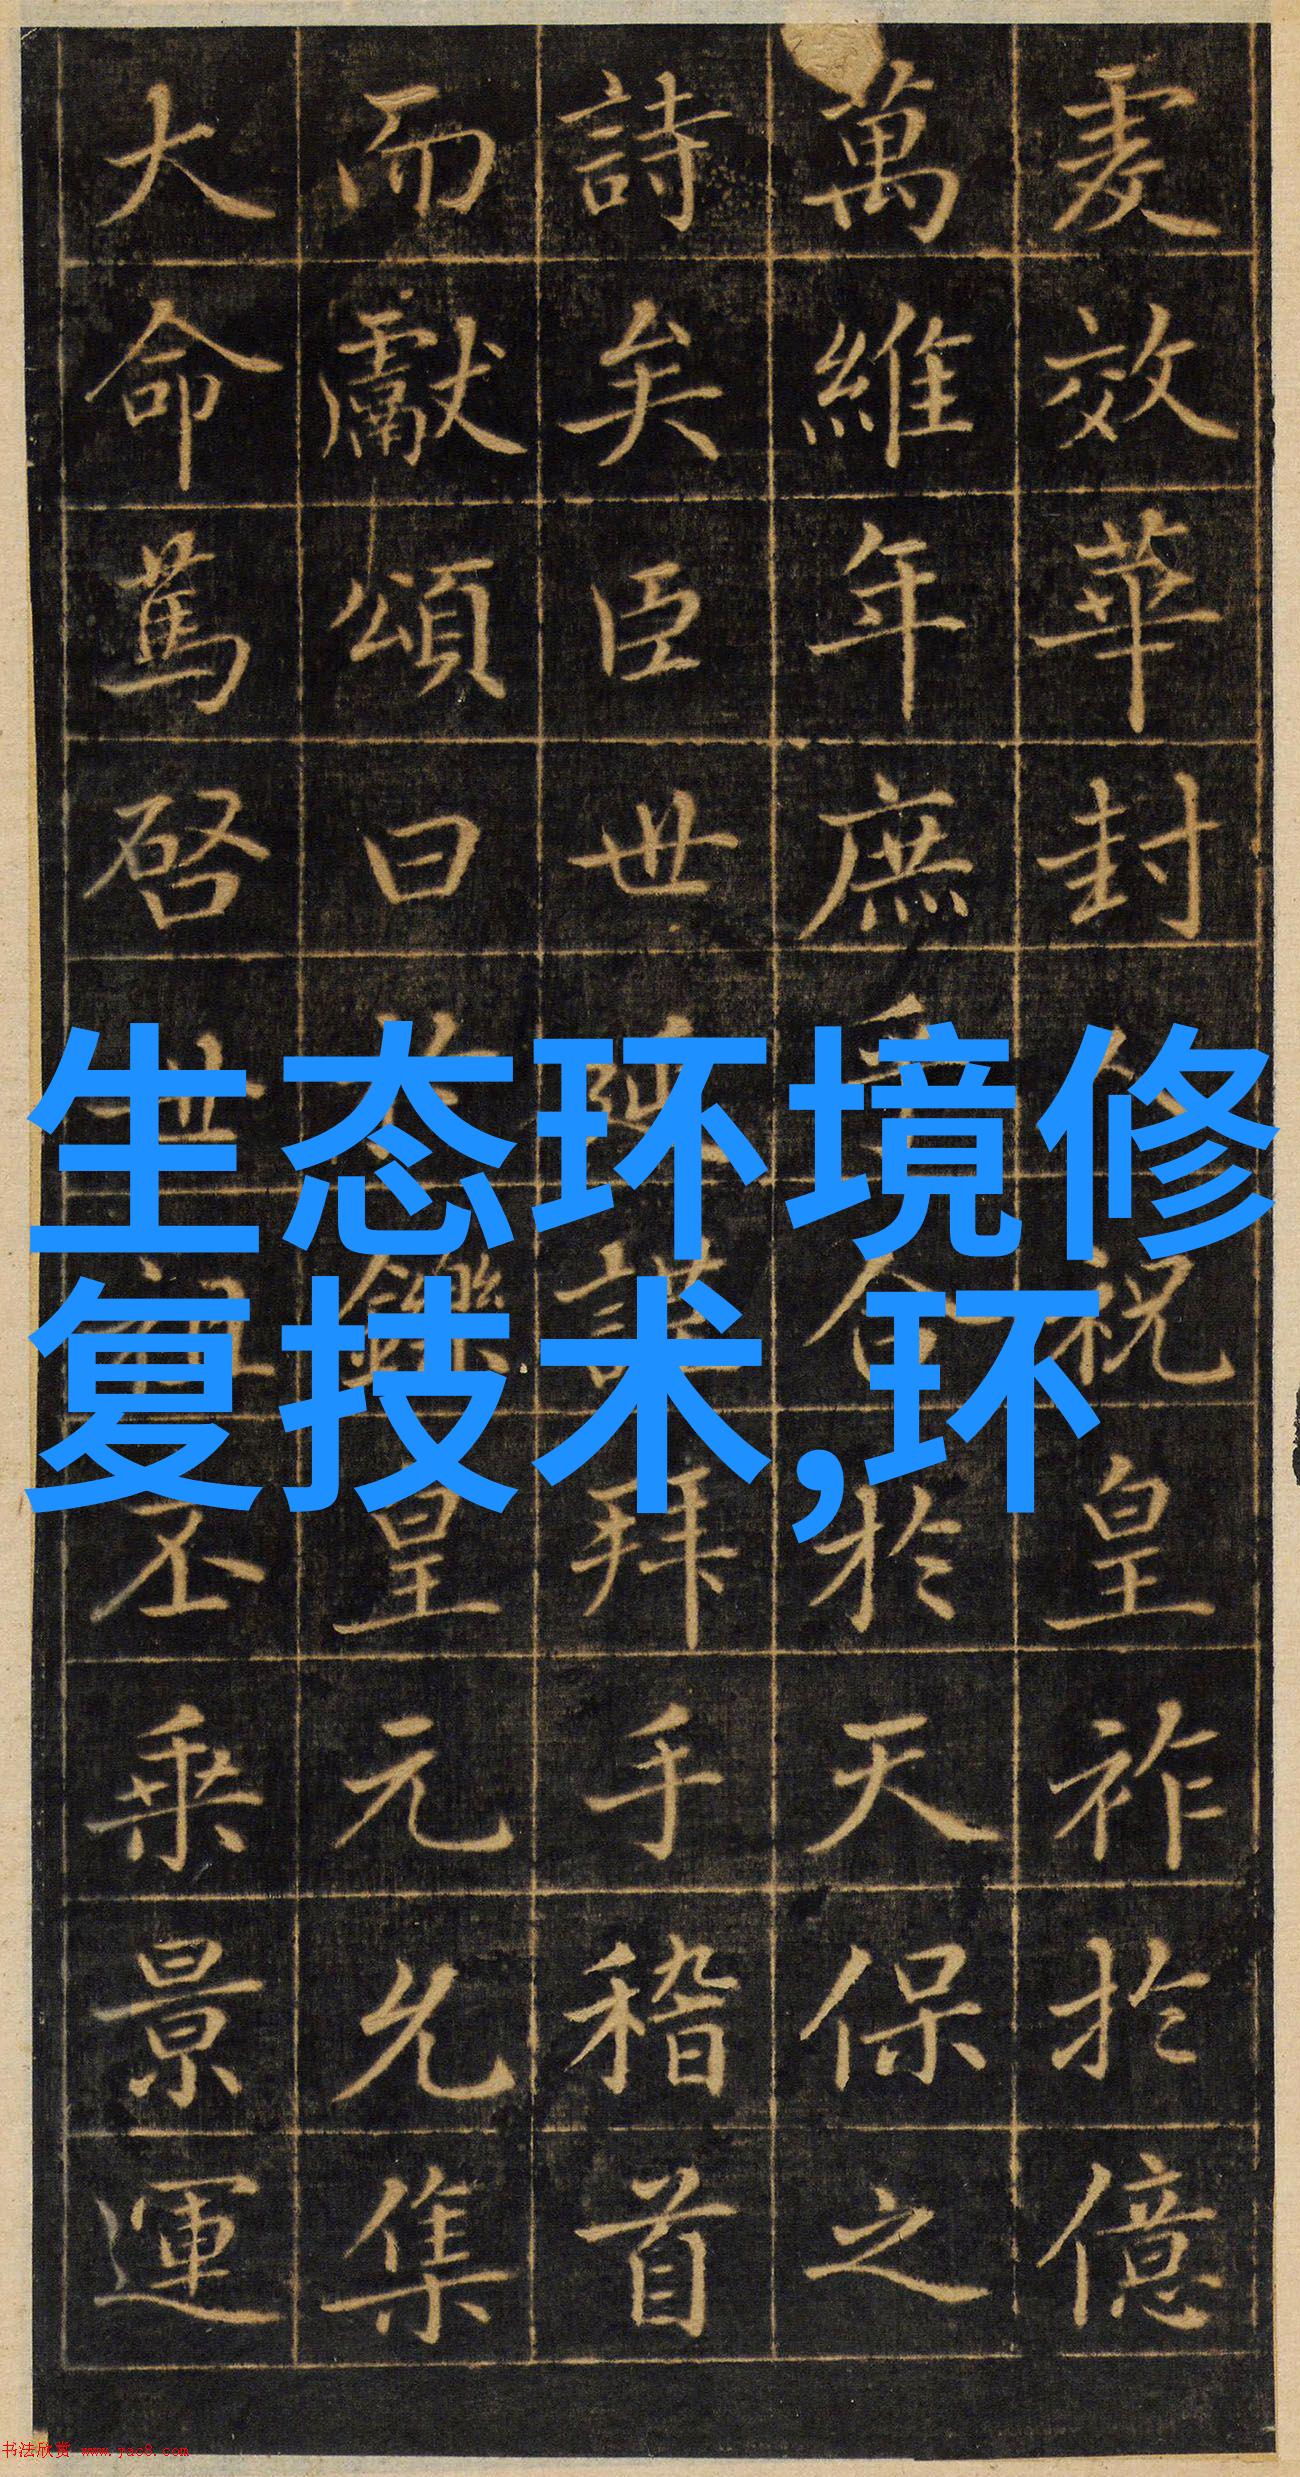 生态环境修
复技术,环
虔效華封祝皇祚於億
萬維年庶乎合於天保之
詩矣臣世延謹拜手稽首
而獻頌曰於鑠皇元允集
大命篤啓世祖丕乘景運
书法欣赏 www.yac8.com